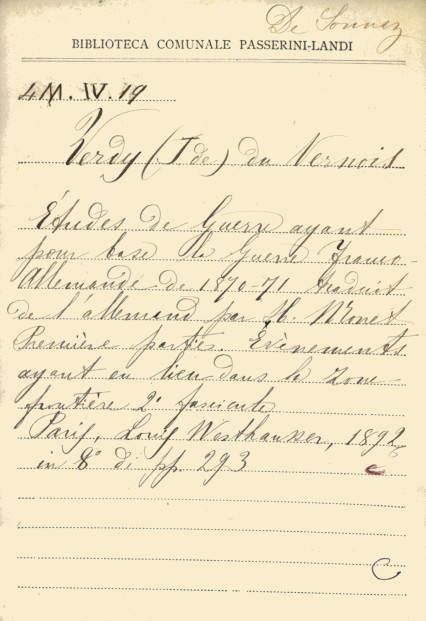 De Sonnaz
BIBLIOTECA COMUNALE PASSERINI-LANDI
4M. IV. 19
Verdy (J de) du Vernois
Études de Guerre ayant
pour base la Guerre Franco-
Allemande de 1870-71 traduit
de l'allemand par M. Monet
Première partie. Évènements
ayant eu lieu dans la zone
frontière 2° fascicule
Paris, Louis Westhausser, 1892
in 8° di pp. 293